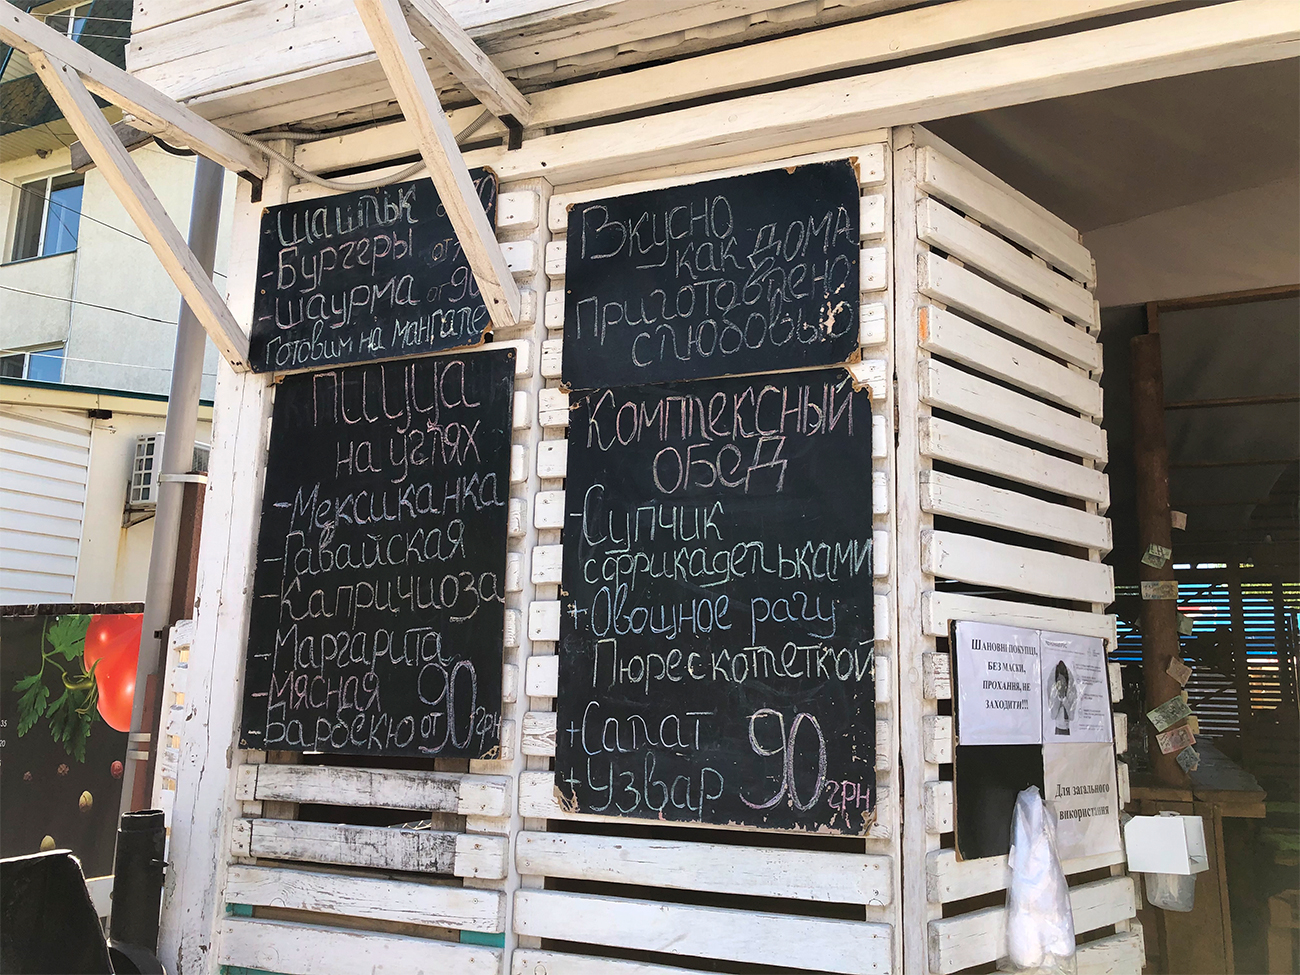 -Шашлык
-Бургеры от
-Шаурма от 90
Готовим на мангале
Пицца
на углях
-Мексиканка
-Гавайская
-Капричиоза
-Маргарита
-Мясная
-Барбекю от 90 грн
Вкусно
как дома
Приготовлено
с любовью
Комплексный
обед
-Супчик
с фрикадельками
+Овощное рагу
Пюре с котлеткой
+Салат
+Узвар 90 грн
Шановні покупці,
без маски,
прохання, не
заходити!!!
Для загального
використання